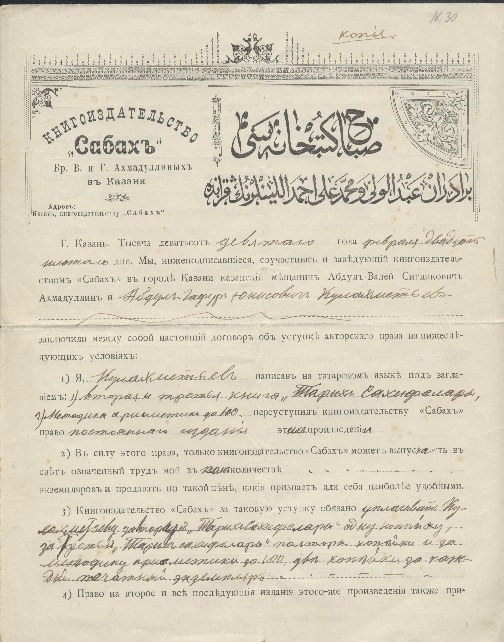 № 30
копія.
КНИГОИЗДАТЕЛЬСТВО
„Сабахъ“
Бр. В. и Г. Ахмадуллиныхъ
въ Казани
Адресъ:
Казань, книгоиздательству „Сабахъ“
صباح كتبخانه سى
برادران عبد الولى و محمد على احمد الليننلرنڭ قزانده
Г. Казань. Тысяча девятьсотъ девятаго года февраля двадцать
дня. Мы, нижеподписавшіеся, соучастникъ и завѣдующій книгоиздатель-
ствомъ «Сабахъ» въ городѣ Казани казанскій мѣщанинъ Абдулъ Валей Ситдиковичъ
Ахмадуллинъ и Абдулъ-Гафуръ Юнисовичъ Кулахметьевъ
заключили между собой настоящій договоръ объ уступкѣ авторскаго права на нижеслѣ-
дующихъ условіяхъ:
1) Я, Кулахметьевъ написавъ на татарскомъ языкѣ подъ загла-
віемъ: 1) вторая и третья книга „Тарихъ Сахифалара“,
2) Методика арифметики до 100 переуступилъ книгоиздательству «Сабахъ»
право постояннаго изданія произведенія
2) Въ силу этого права, только книгоиздательство «Сабахъ» можетъ выпускать въ
свѣтъ означенный трудъ мой въ количествѣ
экземпляровъ и продавать по такой цѣнѣ, какъ признаетъ для себя наиболѣе удобными.
3) Книгоиздательство «Сабахъ» за таковую уступку обязано уплачивать Ку-
лахметьеву за вторую „Тарихъ Сахифалара“ одну копѣйку,
за третью „Тарихъ Сахифалара“ полторы копѣйки и за
методику арифметики до 100 двѣ копѣйки за каж-
дый печатный экземпляръ
4) Право на второе и всѣ послѣдующія изданія этого-же произведенія также при-